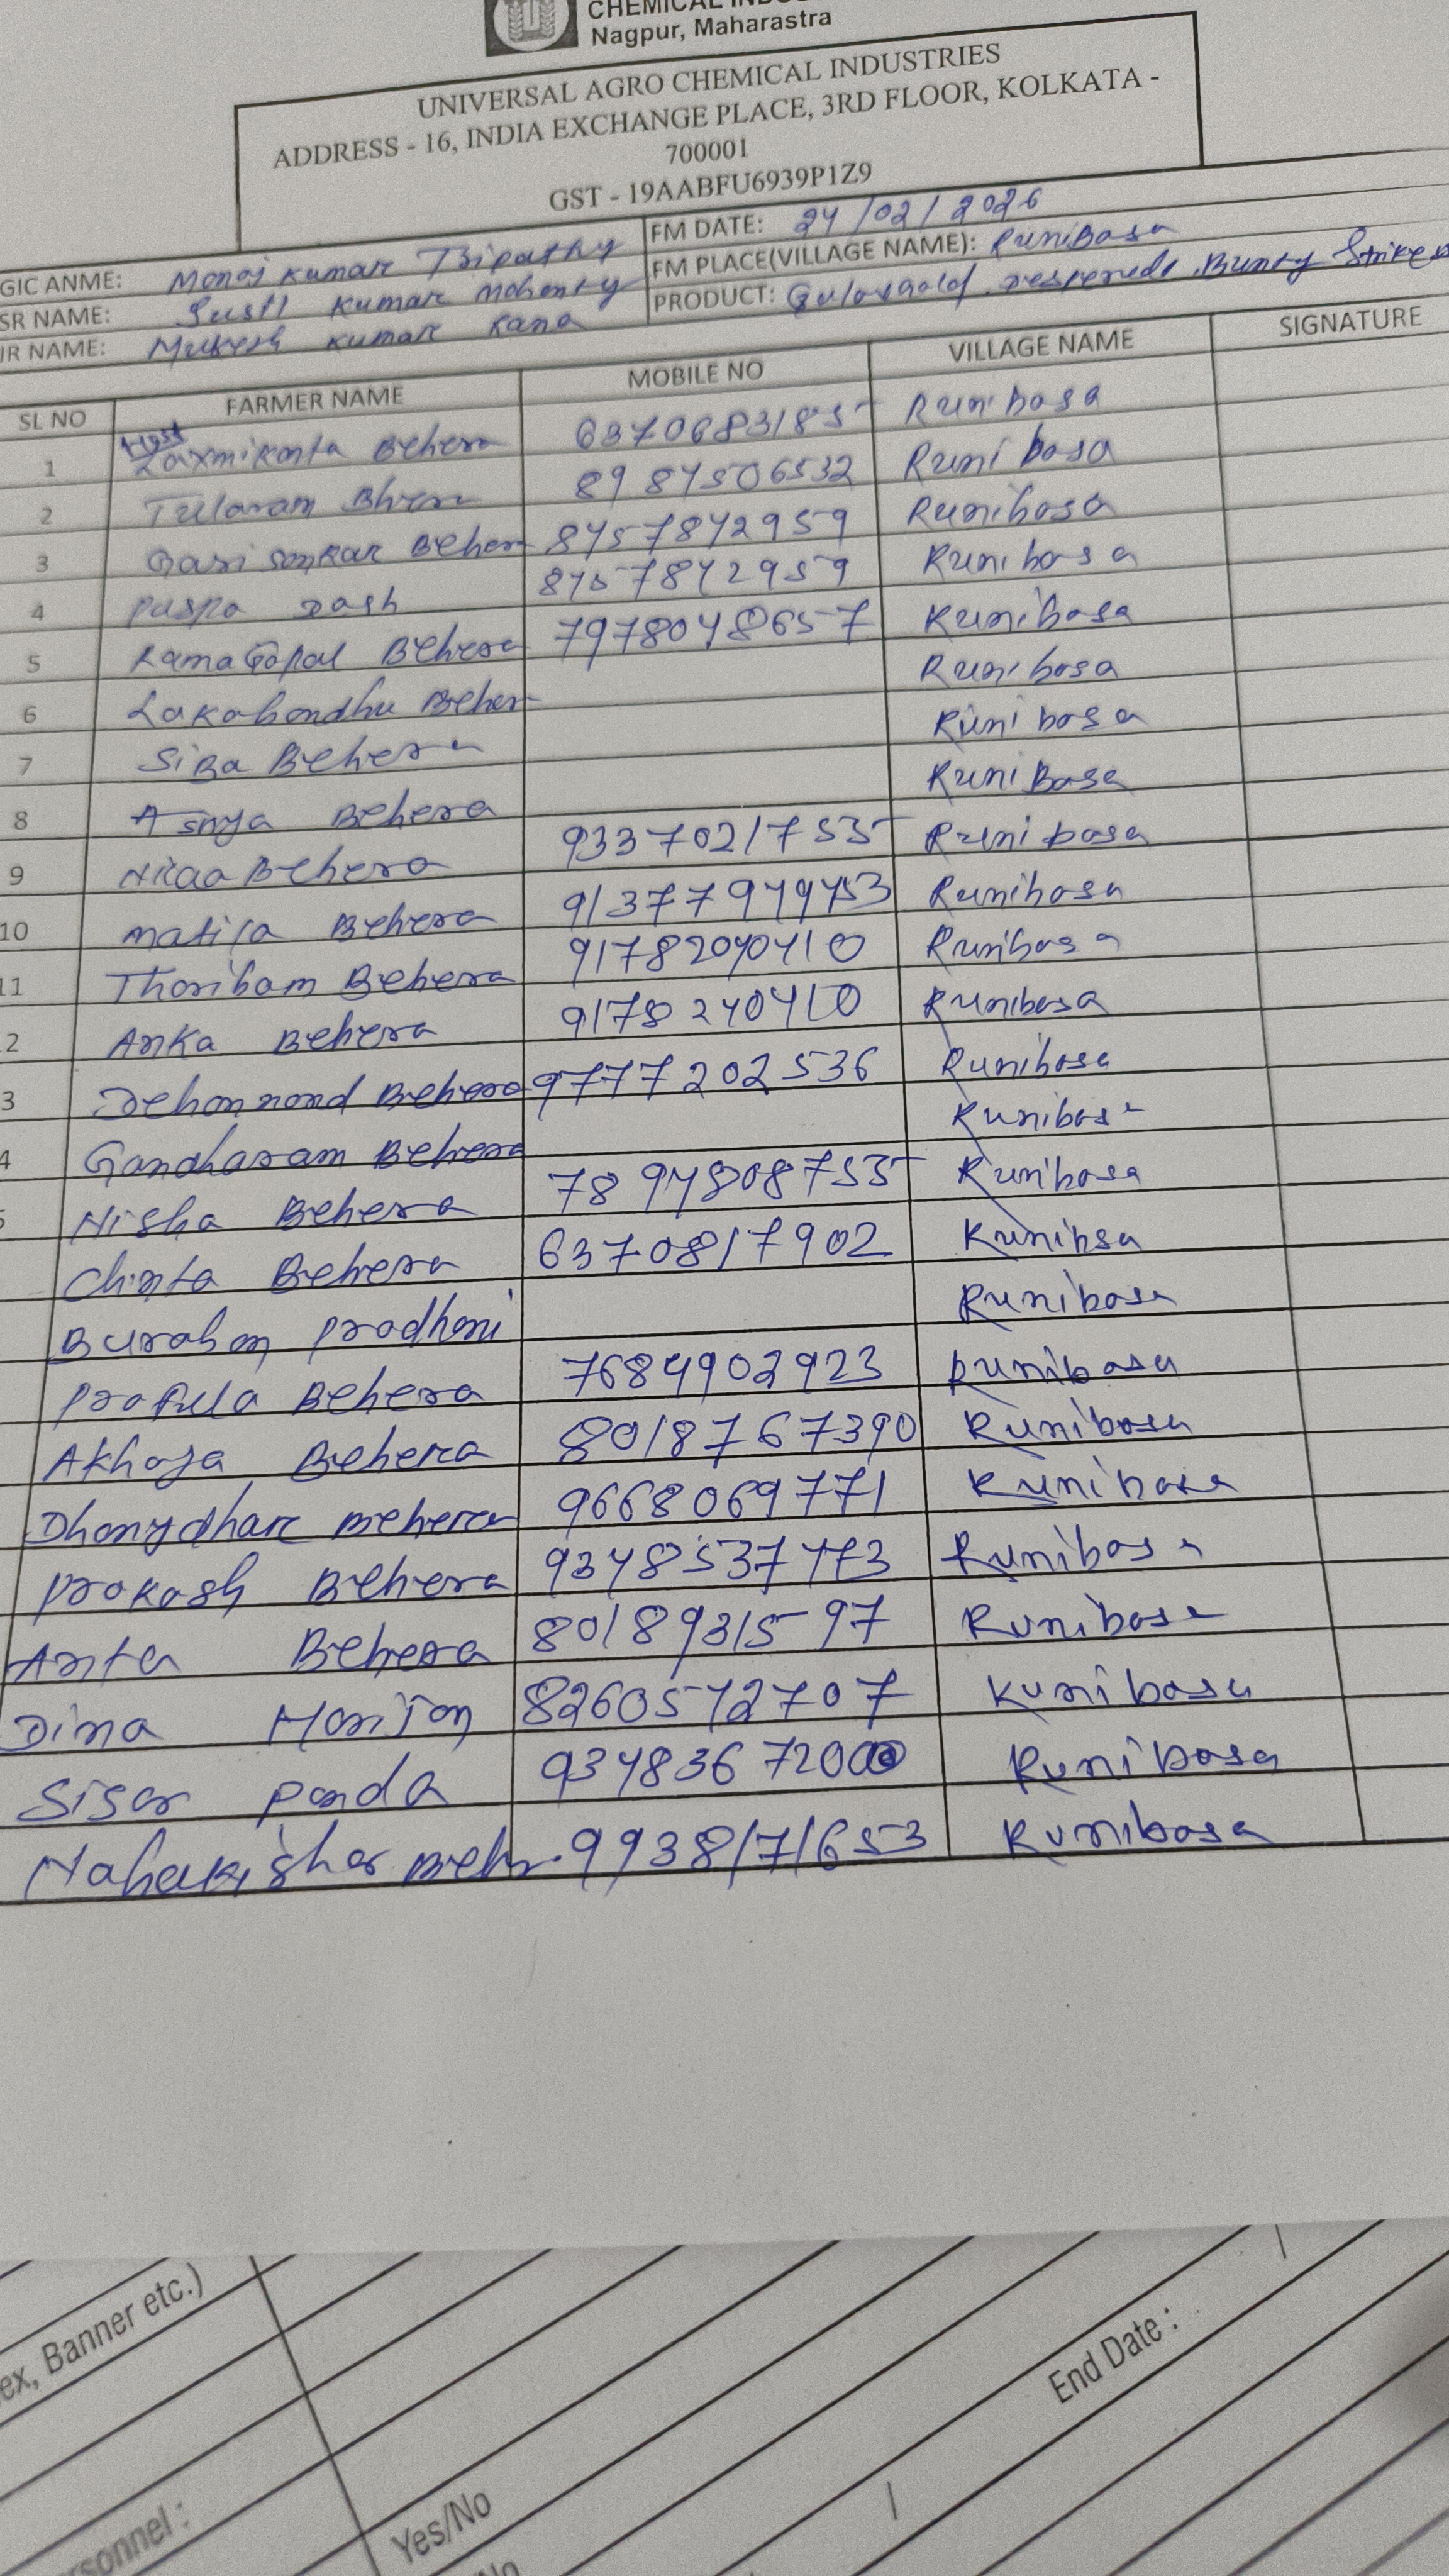 CHEMICAL INDUS
Nagpur, Maharastra
UNIVERSAL AGRO CHEMICAL INDUSTRIES
ADDRESS - 16, INDIA EXCHANGE PLACE, 3RD FLOOR, KOLKATA -
700001
GST - 19AABFU6939P1Z9
GIC ANME: Manoj Kumar Tripathy FM DATE: 24/02/2026
SR NAME: Susil Kumar Mohanty FM PLACE(VILLAGE NAME): RuniBasa
JR NAME: Mukesh Kumar Rana PRODUCT: Bunty Striker
SL NO FARMER NAME MOBILE NO VILLAGE NAME SIGNATURE
1 Laxmikanta Behera 6370683185 Runibasa
2 Tularam Behera 8984506532 Runibasa
3 Gari sankar Behera 8457842959 Runibasa
4 puspa Dash 8457842959 Runibasa
5 RamaGopal Behera 7978048657 Runibasa
6 Lakabandhu Behera Runibasa
7 SiBa Behera Runibasa
8 Behera RuniBasa
9 Behera 9337021755 Runibasa
10 Behera 9137794943 Runibasa
11 Behera 91782040410 Runibasa
2 Anka Behera 9178240410 Runibasa
3 Behera 9777202536 Runibasa
4 Gandharam Behera Runibasa
5 Nisha Behera 7894808755 Runibasa
Chinta Behera 6370817902 Runibsa
Pradhani Runibasa
Prafula Behera 7684902923 Runibasa
Akhaya Behera 8018767390 Runibasa
Behera 9668069771 Runibasa
Prakash Behera Runibasa
Anta Behera 8018931597 Runibasa
Dina Harijan 8260572707 Runibasa
Sisar panda Runibasa
9938171653 Runibasa
ex, Banner etc.)
End Date :
rsonnel :
Yes/No
/No